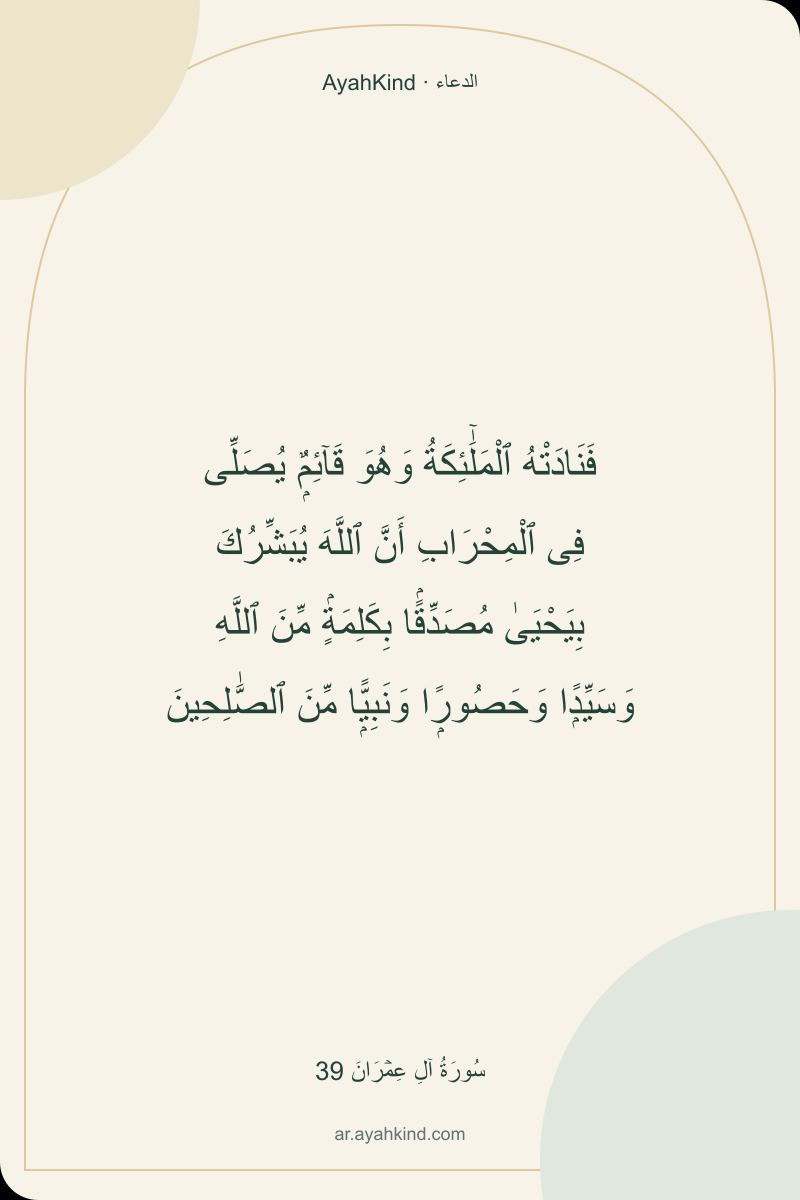 AyahKind · الدعاء
فَنَادَتْهُ ٱلْمَلَٰٓئِكَةُ وَهُوَ قَآئِمٌۭ يُصَلِّى
فِى ٱلْمِحْرَابِ أَنَّ ٱللَّهَ يُبَشِّرُكَ
بِيَحْيَىٰ مُصَدِّقًۢا بِكَلِمَةٍۢ مِّنَ ٱللَّهِ
وَسَيِّدًۭا وَحَصُورًۭا وَنَبِيًّۭا مِّنَ ٱلصَّٰلِحِينَ
سُورَةُ آلِ عِمۡرَانَ 39
ar.ayahkind.com